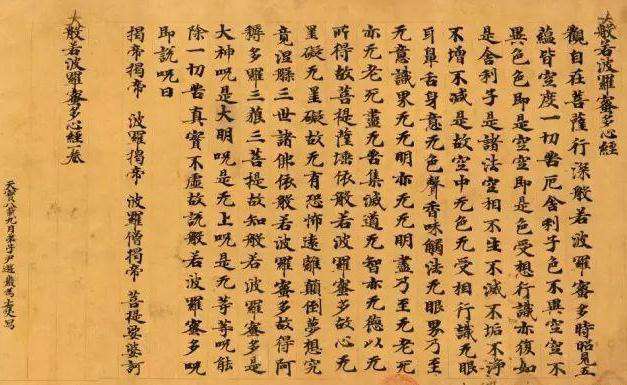 大般若波羅蜜多心經
觀自在菩薩行深般若波羅蜜多時照見五
蘊皆空度一切苦厄舍利子色不異空空不
異色色即是空空即是色受想行識亦復如
是舍利子是諸法空相不生不滅不垢不淨
不增不減是故空中无色无受想行識无眼
耳鼻舌身意无色聲香味觸法无眼界乃至
无意識界无无明亦无无明盡乃至无老死
亦无老死盡无苦集滅道无智亦无得以无
所得故菩提薩埵依般若波羅蜜多故心无
罣礙无罣礙故无有恐怖遠離顛倒夢想究
竟涅槃三世諸佛依般若波羅蜜多故得阿
耨多羅三藐三菩提故知般若波羅蜜多是
大神呪是大明呪是无上呪是无等等呪能
除一切苦真實不虛故說般若波羅蜜多呪
即說呪曰
揭帝揭帝 波羅揭帝 波羅僧揭帝 菩提娑婆訶
大般若波羅蜜多心經一卷
天寶八載九月弟子尹遊巖為亡父寫